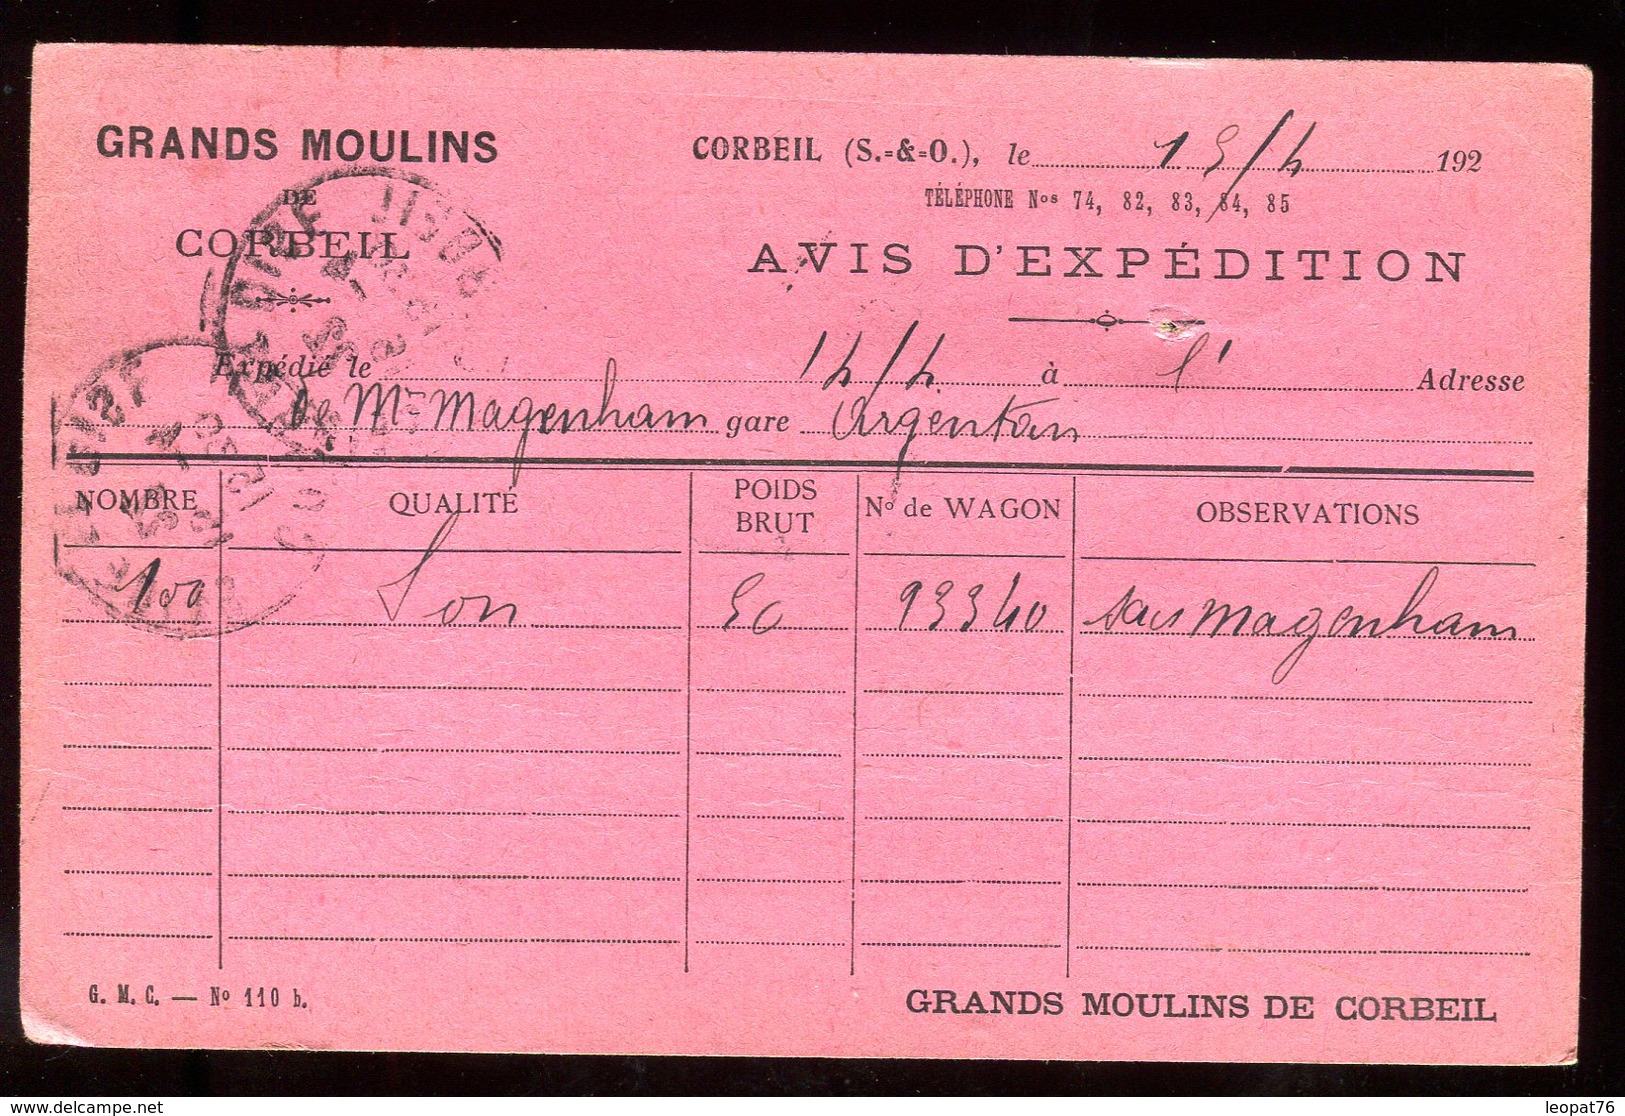 GRANDS MOULINS
DE
CORBEIL
CORBEIL (S.=&=O.), le 15/4 192
TÉLÉPHONE Nos 74, 82, 83, 84, 85
AVIS D'EXPÉDITION
Expédié le 14/4 à l' Adresse
de Mr Magenham gare Argentan
NOMBRE QUALITÉ POIDS BRUT No de WAGON OBSERVATIONS
100 Son 50 93340 sacs Magenham
G. M. C. — No 110 b.
GRANDS MOULINS DE CORBEIL
delcampe.net
leopat76